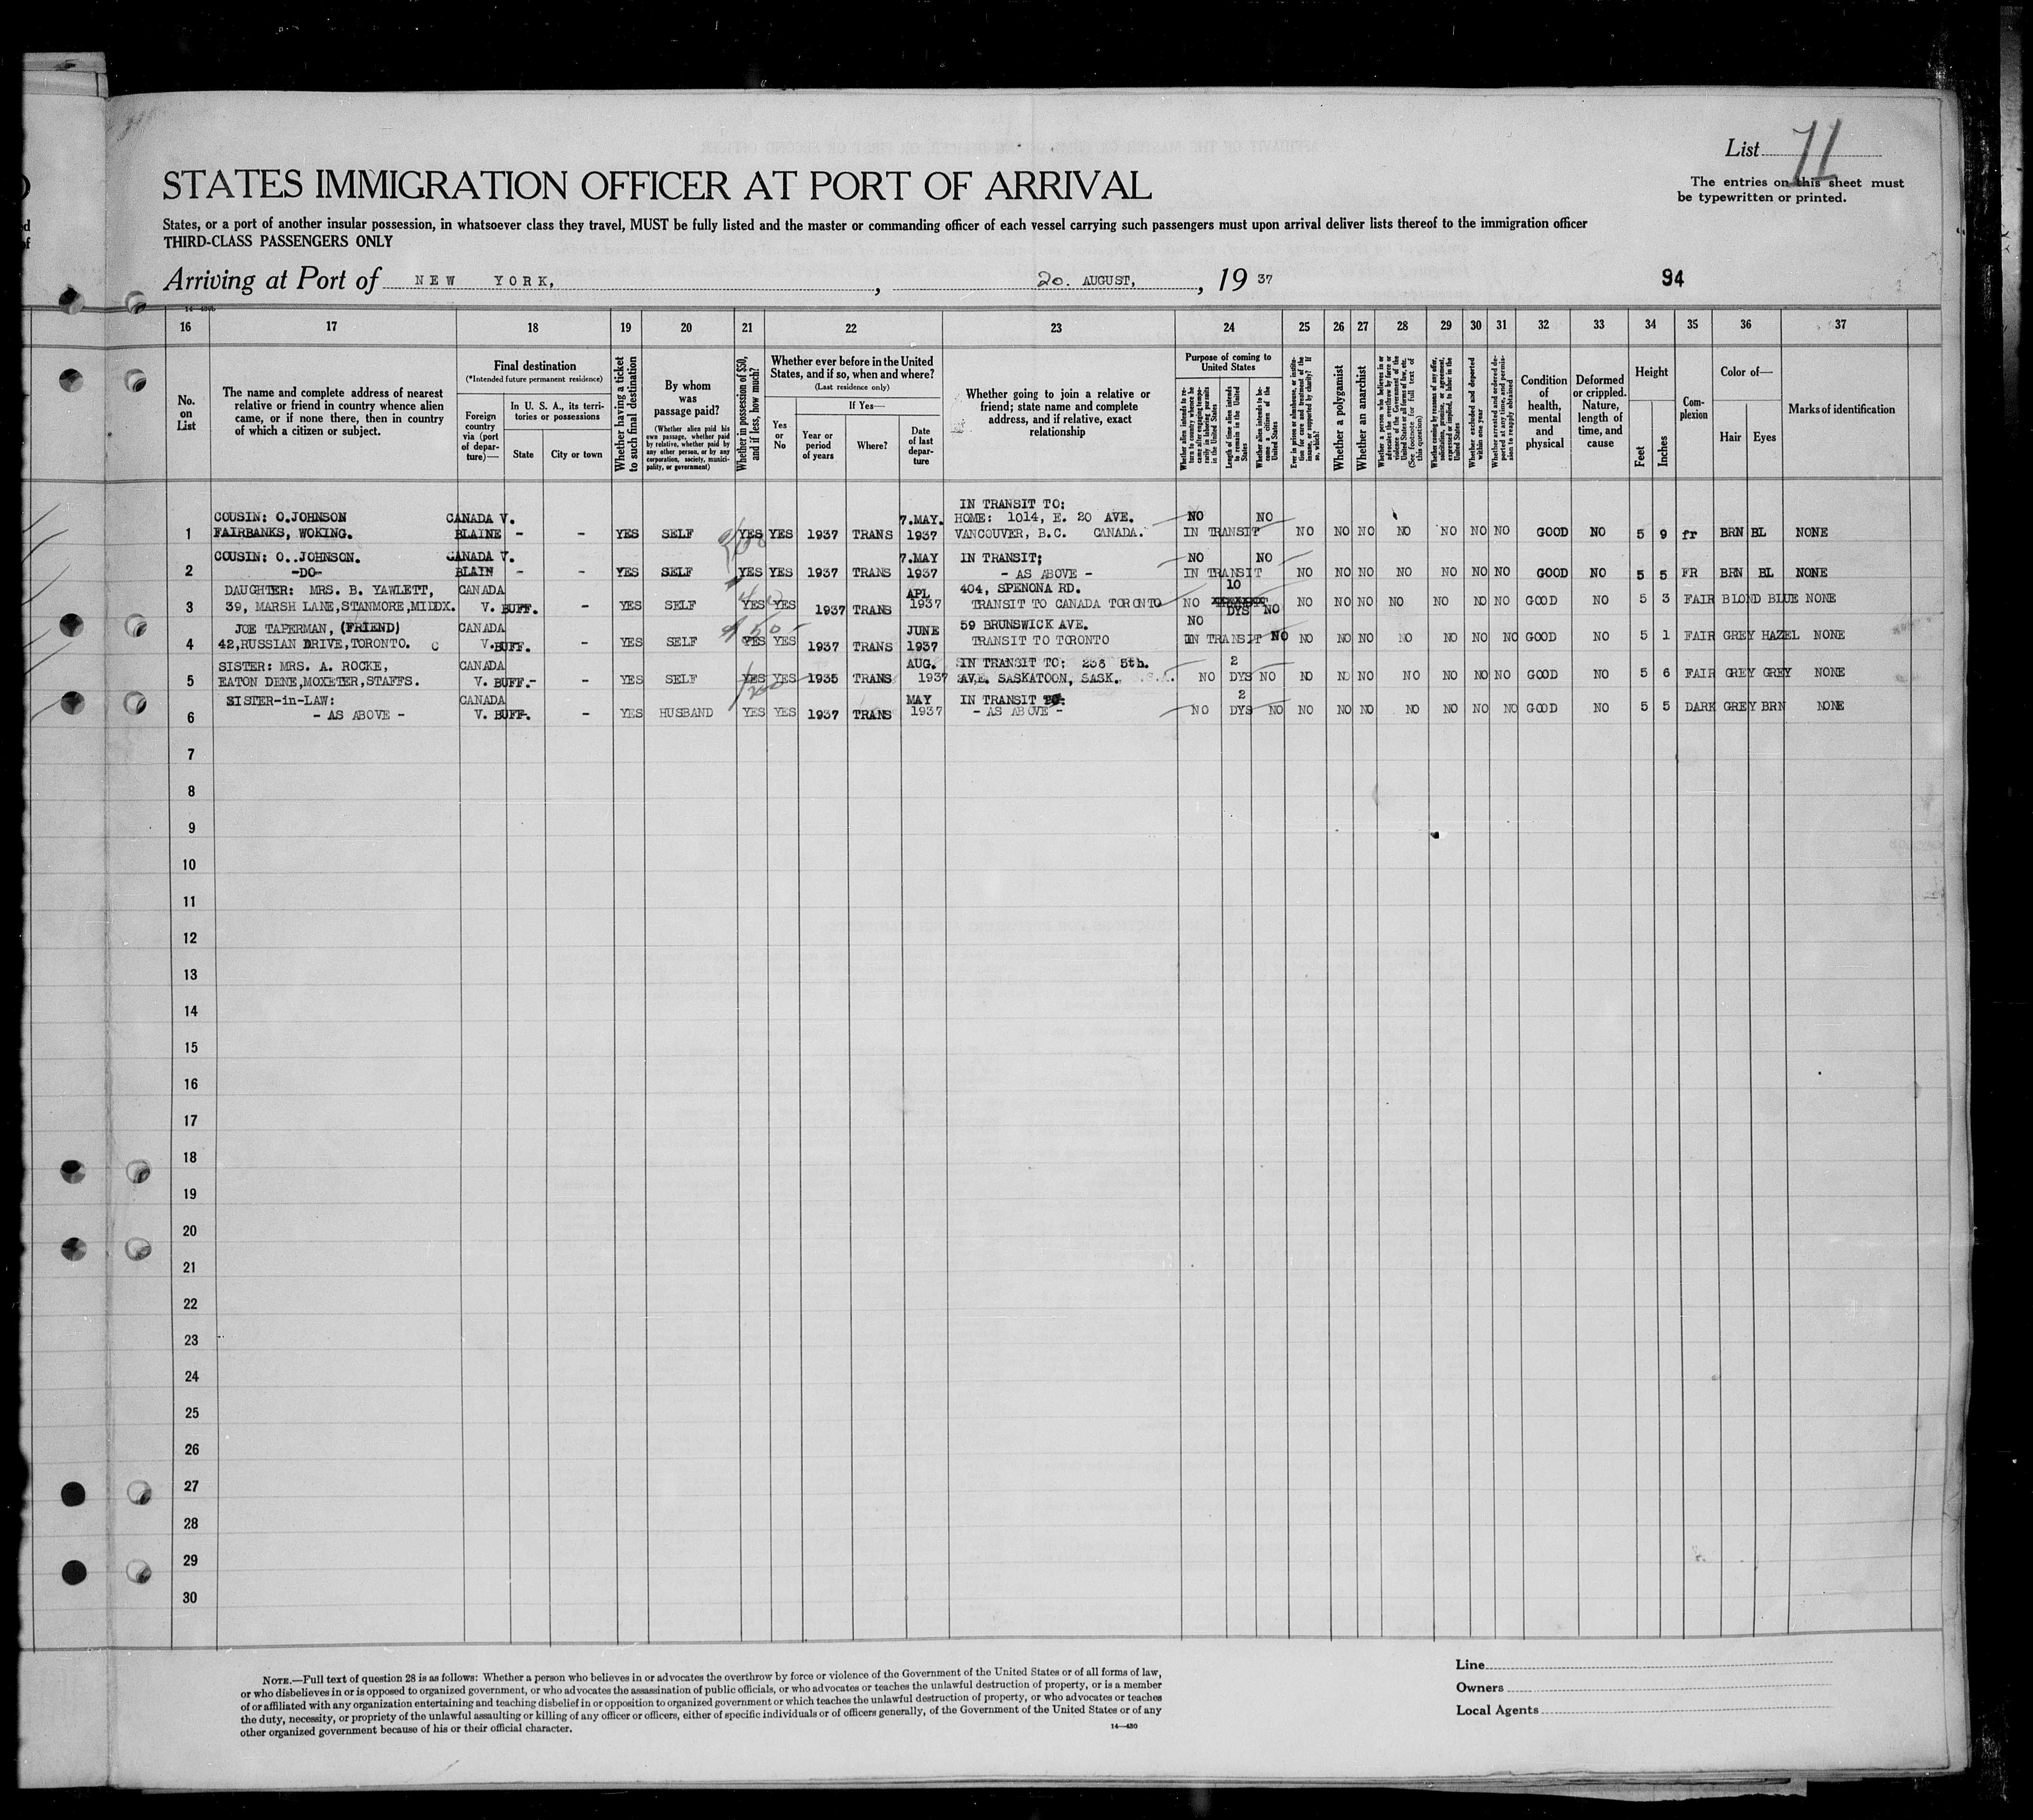 List 71
The entries on this sheet must
be typewritten or printed.
STATES IMMIGRATION OFFICER AT PORT OF ARRIVAL
States, or a port of another insular possession, in whatsoever class they travel, MUST be fully listed and the master or commanding officer of each vessel carrying such passengers must upon arrival deliver lists thereof to the immigration officer
THIRD-CLASS PASSENGERS ONLY
Arriving at Port of NEW YORK, , 20. AUGUST, , 19 37
94
16 17 18 19 20 21 22 23 24 25 26 27 28 29 30 31 32 33 34 35 36 37
No. on List
The name and complete address of nearest
relative or friend in country whence alien
came, or if none there, then in country
of which a citizen or subject.
Final destination
(*Intended future permanent residence)
Foreign
country
via (port
of depar-
ture)—
In U. S. A., its terri-
tories or possessions
State
City or town
Whether having a ticket
to such final destination
By whom
was
passage paid?
(Whether alien paid his
own passage, whether paid
by relative, whether paid by
any other person, or by any
corporation, society, munici-
pality, or government)
Whether in possession of $50,
and if less, how much?
Whether ever before in the United
States, and if so, when and where?
(Last residence only)
Yes
or
No
If Yes—
Year or
period
of years
Where?
Date
of last
depar-
ture
Whether going to join a relative or
friend; state name and complete
address, and if relative, exact
relationship
Purpose of coming to
United States
Whether alien intends to re-
turn to country whence he
came after engaging tempo-
rarily in laboring pursuits
in the United States
Length of time alien intends
to remain in the United
States
Whether alien intends to be-
come a citizen of the
United States
Ever in prison or almshouse, or institu-
tion for care and treatment of the
insane, or supported by charity? If
so, which?
Whether a polygamist
Whether an anarchist
Whether a person who believes in or
advocates the overthrow by force or
violence of the Government of the
United States or all forms of law, etc.
(See footnote for full text of
this question)
Whether coming by reasons of any offer,
solicitation, promise, or agreement,
expressed or implied, to labor in the
United States
Whether excluded and deported
within one year
Whether arrested and ordered de-
ported at any time, and permis-
sion to reapply obtained
Condition
of
health,
mental
and
physical
Deformed
or crippled.
Nature,
length of
time, and
cause
Height
Feet
Inches
Com-
plexion
Color of—
Hair
Eyes
Marks of identification
IN TRANSIT TO:
COUSIN: O.JOHNSON CANADA V. 7.MAY. HOME: 1014, E. 20 AVE. NO NO
1 FAIRBANKS, WOKING. BLAINE - - YES SELF YES YES 1937 TRANS 1937 VANCOUVER, B.C. CANADA. IN TRANSIT NO NO NO NO NO NO NO GOOD NO 5 9 fr BRN BL NONE
COUSIN: O..JOHNSON. CANADA V. 7.MAY IN TRANSIT; NO NO
2 -DO- BLAIN - - YES SELF YES YES 1937 TRANS 1937 - AS ABOVE - IN TRANSIT NO NO NO NO NO NO NO GOOD NO 5 5 FR BRN BL NONE
DAUGHTER: MRS. B. YAWLETT, CANADA APL 404, SPENONA RD. 10
3 39, MARSH LANE,STANMORE,MIDDX. V. BUFF. - YES SELF YES YES 1937 TRANS 1937 TRANSIT TO CANADA TORONTO NO DYS NO NO NO NO NO NO NO NO GOOD NO 5 3 FAIR BLOND BLUE NONE
JOE TAPERMAN, (FRIEND) CANADA JUNE 59 BRUNSWICK AVE. NO
4 42,RUSSIAN DRIVE,TORONTO. C V.BUFF. - YES SELF YES YES 1937 TRANS 1937 TRANSIT TO TORONTO IN TRANSIT NO NO NO NO NO NO NO NO GOOD NO 5 1 FAIR GREY HAZEL NONE
SISTER: MRS. A. ROCKE, CANADA AUG. IN TRANSIT TO: 236 5th. 2
5 EATON DENE,MOXETER,STAFFS. V. BUFF.- - YES SELF YES YES 1935 TRANS 1937 AVE. SASKATOON, SASK. NO DYS NO NO NO NO NO NO NO NO GOOD NO 5 6 FAIR GREY GREY NONE
SISTER-in-LAW: CANADA MAY IN TRANSIT TO: 2
6 - AS ABOVE - V. BUFF. - YES HUSBAND YES YES 1937 TRANS 1937 - AS ABOVE - NO DYS NO NO NO NO NO NO NO NO GOOD NO 5 5 DARK GREY BRN NONE
7
8
9
10
11
12
13
14
15
16
17
18
19
20
21
22
23
24
25
26
27
28
29
30
NOTE.—Full text of question 28 is as follows: Whether a person who believes in or advocates the overthrow by force or violence of the Government of the United States or of all forms of law,
or who disbelieves in or is opposed to organized government, or who advocates the assassination of public officials, or who advocates or teaches the unlawful destruction of property, or is a member
of or affiliated with any organization entertaining and teaching disbelief in or opposition to organized government or which teaches the unlawful destruction of property, or who advocates or teaches
the duty, necessity, or propriety of the unlawful assaulting or killing of any officer or officers, either of specific individuals or of officers generally, of the Government of the United States or of any
other organized government because of his or their official character.
14—430
Line
Owners
Local Agents